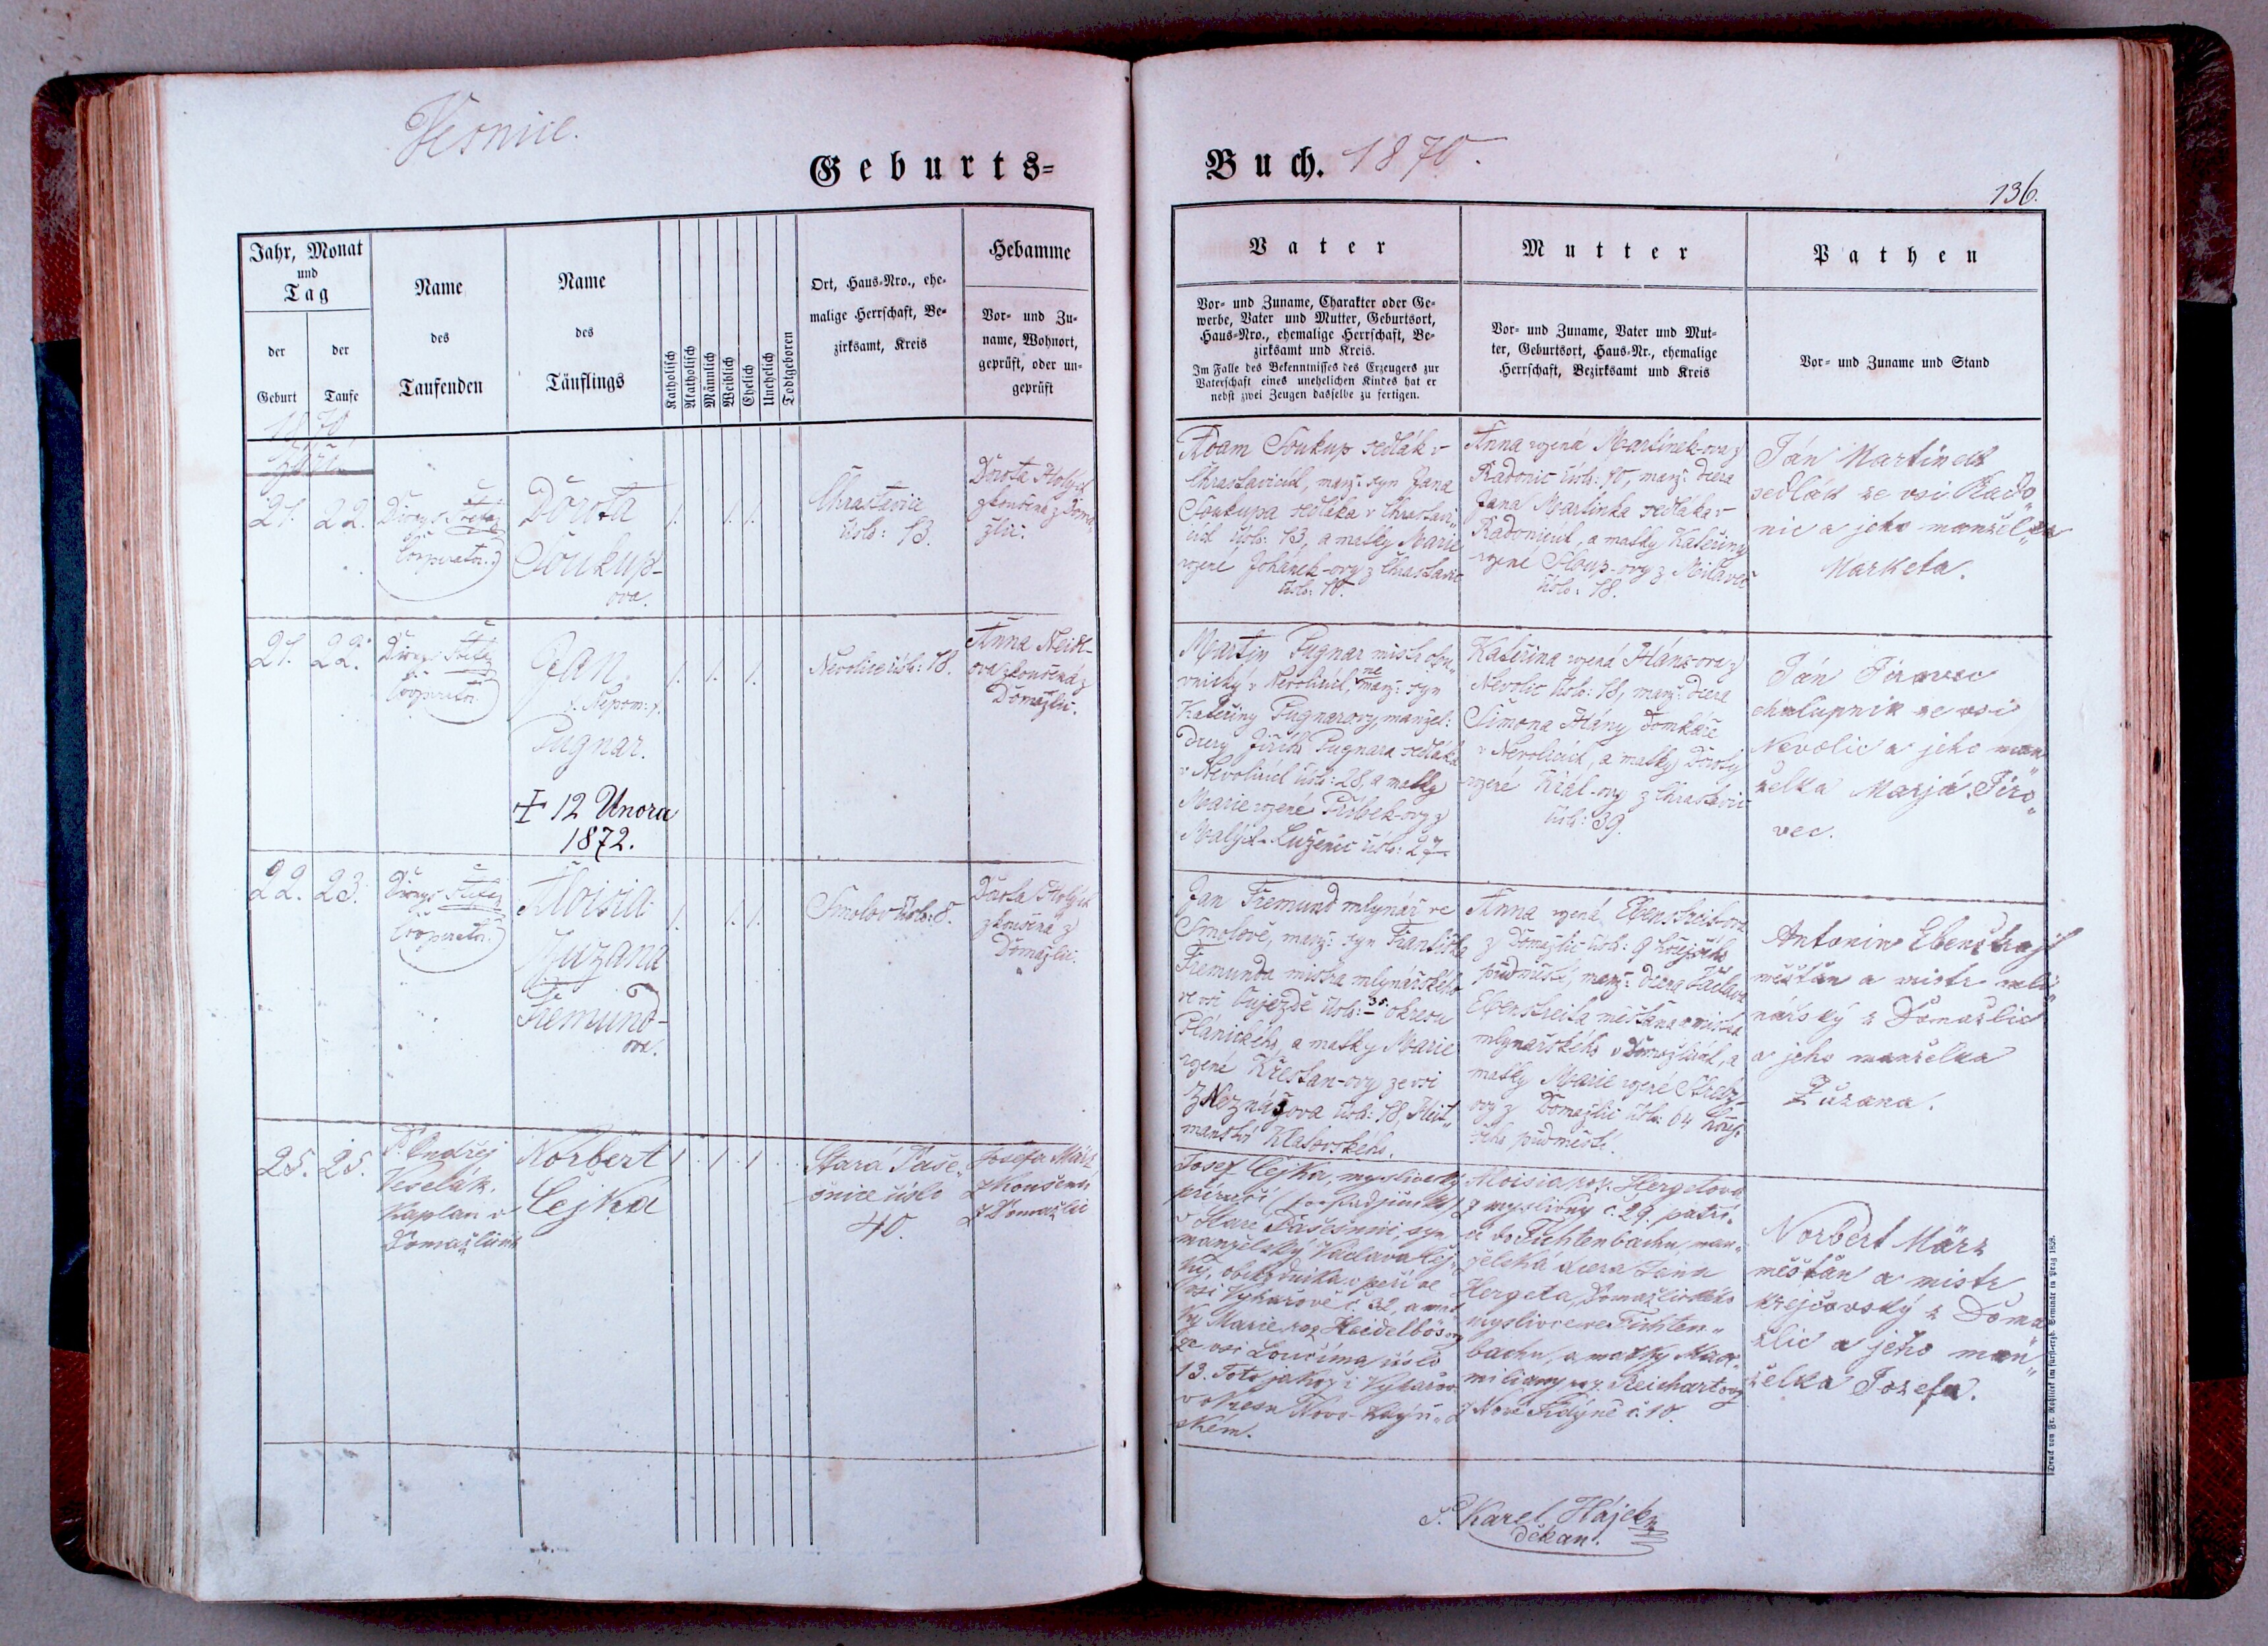 Vesnice.
Geburts=
Buch. 1870.
136.
Jahr, Monat
und
Tag
der
Geburt
der
Taufe
Name
des
Taufenden
Name
des
Täuflings
Katholisch
Akatholisch
Männlich
Weiblich
Ehelich
Unehelich
Todtgeboren
Ort, Haus-Nro., ehe-
malige Herrschaft, Be-
zirksamt, Kreis
Hebamme
Vor- und Zu-
name, Wohnort,
geprüft, oder un-
geprüft
Vater
Vor- und Zuname, Charakter oder Ge-
werbe, Vater und Mutter, Geburtsort,
Haus-Nro., ehemalige Herrschaft, Be-
zirksamt und Kreis.
Im Falle des Bekenntnisses des Erzeugers zur
Vaterschaft eines unehelichen Kindes hat er
nebst zwei Zeugen dasselbe zu fertigen.
Mutter
Vor- und Zuname, Vater und Mut-
ter, Geburtsort, Haus-Nr., ehemalige
Herrschaft, Bezirksamt und Kreis
Pathen
Vor- und Zuname und Stand
1870
Září
21. 22.
Cooperator.
Dorota
Soukup-
ova.
1. 1. 1.
Chrastavice
číslo: 13.
Dorota Holých
zkoušená z Doma-
žlic.
Adam Soukup sedlák v
Chrastavicích, manž. syn Jana
Soukupa sedláka v Chrastavi-
cích číslo: 13, a matky Marie
rozené Johánek-ovy z Chrastavic
číslo: 10.
Anna rozená Martinek-ova z
Radonic číslo: 40, manž. dcera
Jana Martinka sedláka v
Radonicích, a matky Kateřiny
rozené Sloup-ovy z Milaveč
číslo: 18.
Ján Martinek
sedlák ze vsi Rado„
nic a jeho manžel„ka
Marketa.
21. 22.
Cooperator.
Jan
(: Nepom:).
Pugnar.
✝ 12 Unora
1872.
1. 1. 1.
Nevolice číslo: 18.
Anna
zkoušená z
Domažlic.
Martin Pugnar mistr obu„
vnický v Nevolicích, ne manž: syn
Kateřiny Pugnarovy, manžel:
dcery Jiřího Pugnara sedláka
v Nevolicích číslo: 28, a matky
Marie rozené z
Malých-Luženic číslo: 27.
Kateřina rozená Hánov-ova z
Nevolic číslo: 18, manž: dcera
Šimona Hány domkáře
v Nevolicích, a matky Doroty
rozené z Chrastavic
číslo: 39.
Ján Jirovec
chalupnik ze vsi
Nevolic a jeho man„
želka Marjá Jiro„
vec.
22. 23.
Cooperator.
Aloisia
Zuzana
Fremund-
ova.
1. 1. 1.
Smolov číslo: 8.
Dorota Holých
zkoušená z
Domažlic.
Jan Fremund mlynář ve
Smolově, manž: syn Františka
Fremunda mistra mlynářského
ve vsi Oujezdě číslo: 35. okresu
Plánického, a matky Marie
rozené Křesťan-ovy ze vsi
Zdeznášova číslo: 18, Hejt„
manství Klatovského.
Anna rozená Ebenstreit-ova
z Domažlic číslo: 9
předměstí, manž: dcera Václava
Ebenstreita měšťana a mistra
mlynářského v Domažlicích, a
matky Marie rozené
ovy z Domažlic číslo: 64
předměstí.
Antonin Ebenstrajt
měšťan a mistr mli„
nářský z Domažlic
a jeho manželka
Zuzana.
25. 25.
P. Ondřej
Veselák.
Kaplan v
Domažlicích
Norbert
Cejka
1. 1. 1
Stará Paše-
šnice číslo
40.
Josefa März
zkoušená
z Domažlic
Josef Cejka, myslivecký
příručí (:
v Staré Pašešnici, syn
manželský Václava Cej-
ky, v peří ve
vsi č. 32, a mat
ky Marie roz. Heidelbös-ovy
ze vsi Loučima číslo
13. Toto jakož i
v okresu Novo-Kdyň-
ském.
Aloisia roz. Hergetova
z myslivny č. 29. patří„
cí do Fichtenbachu, man„
želská dcera Jana
Hergeta, Domažlického
myslivce ve Fichten„
bachu, a matky Maxi„
miliany roz. Reichartovy
z Nové Kdýně č. 10.
Norbert März
měšťan a mistr
krejčovský z Doma
žlic a jeho man„
želka Josefa.
P. Karel Hájek
děkan.
Druck von Fr. Rohliček im fürsterzb. Seminär in Prag 1859.